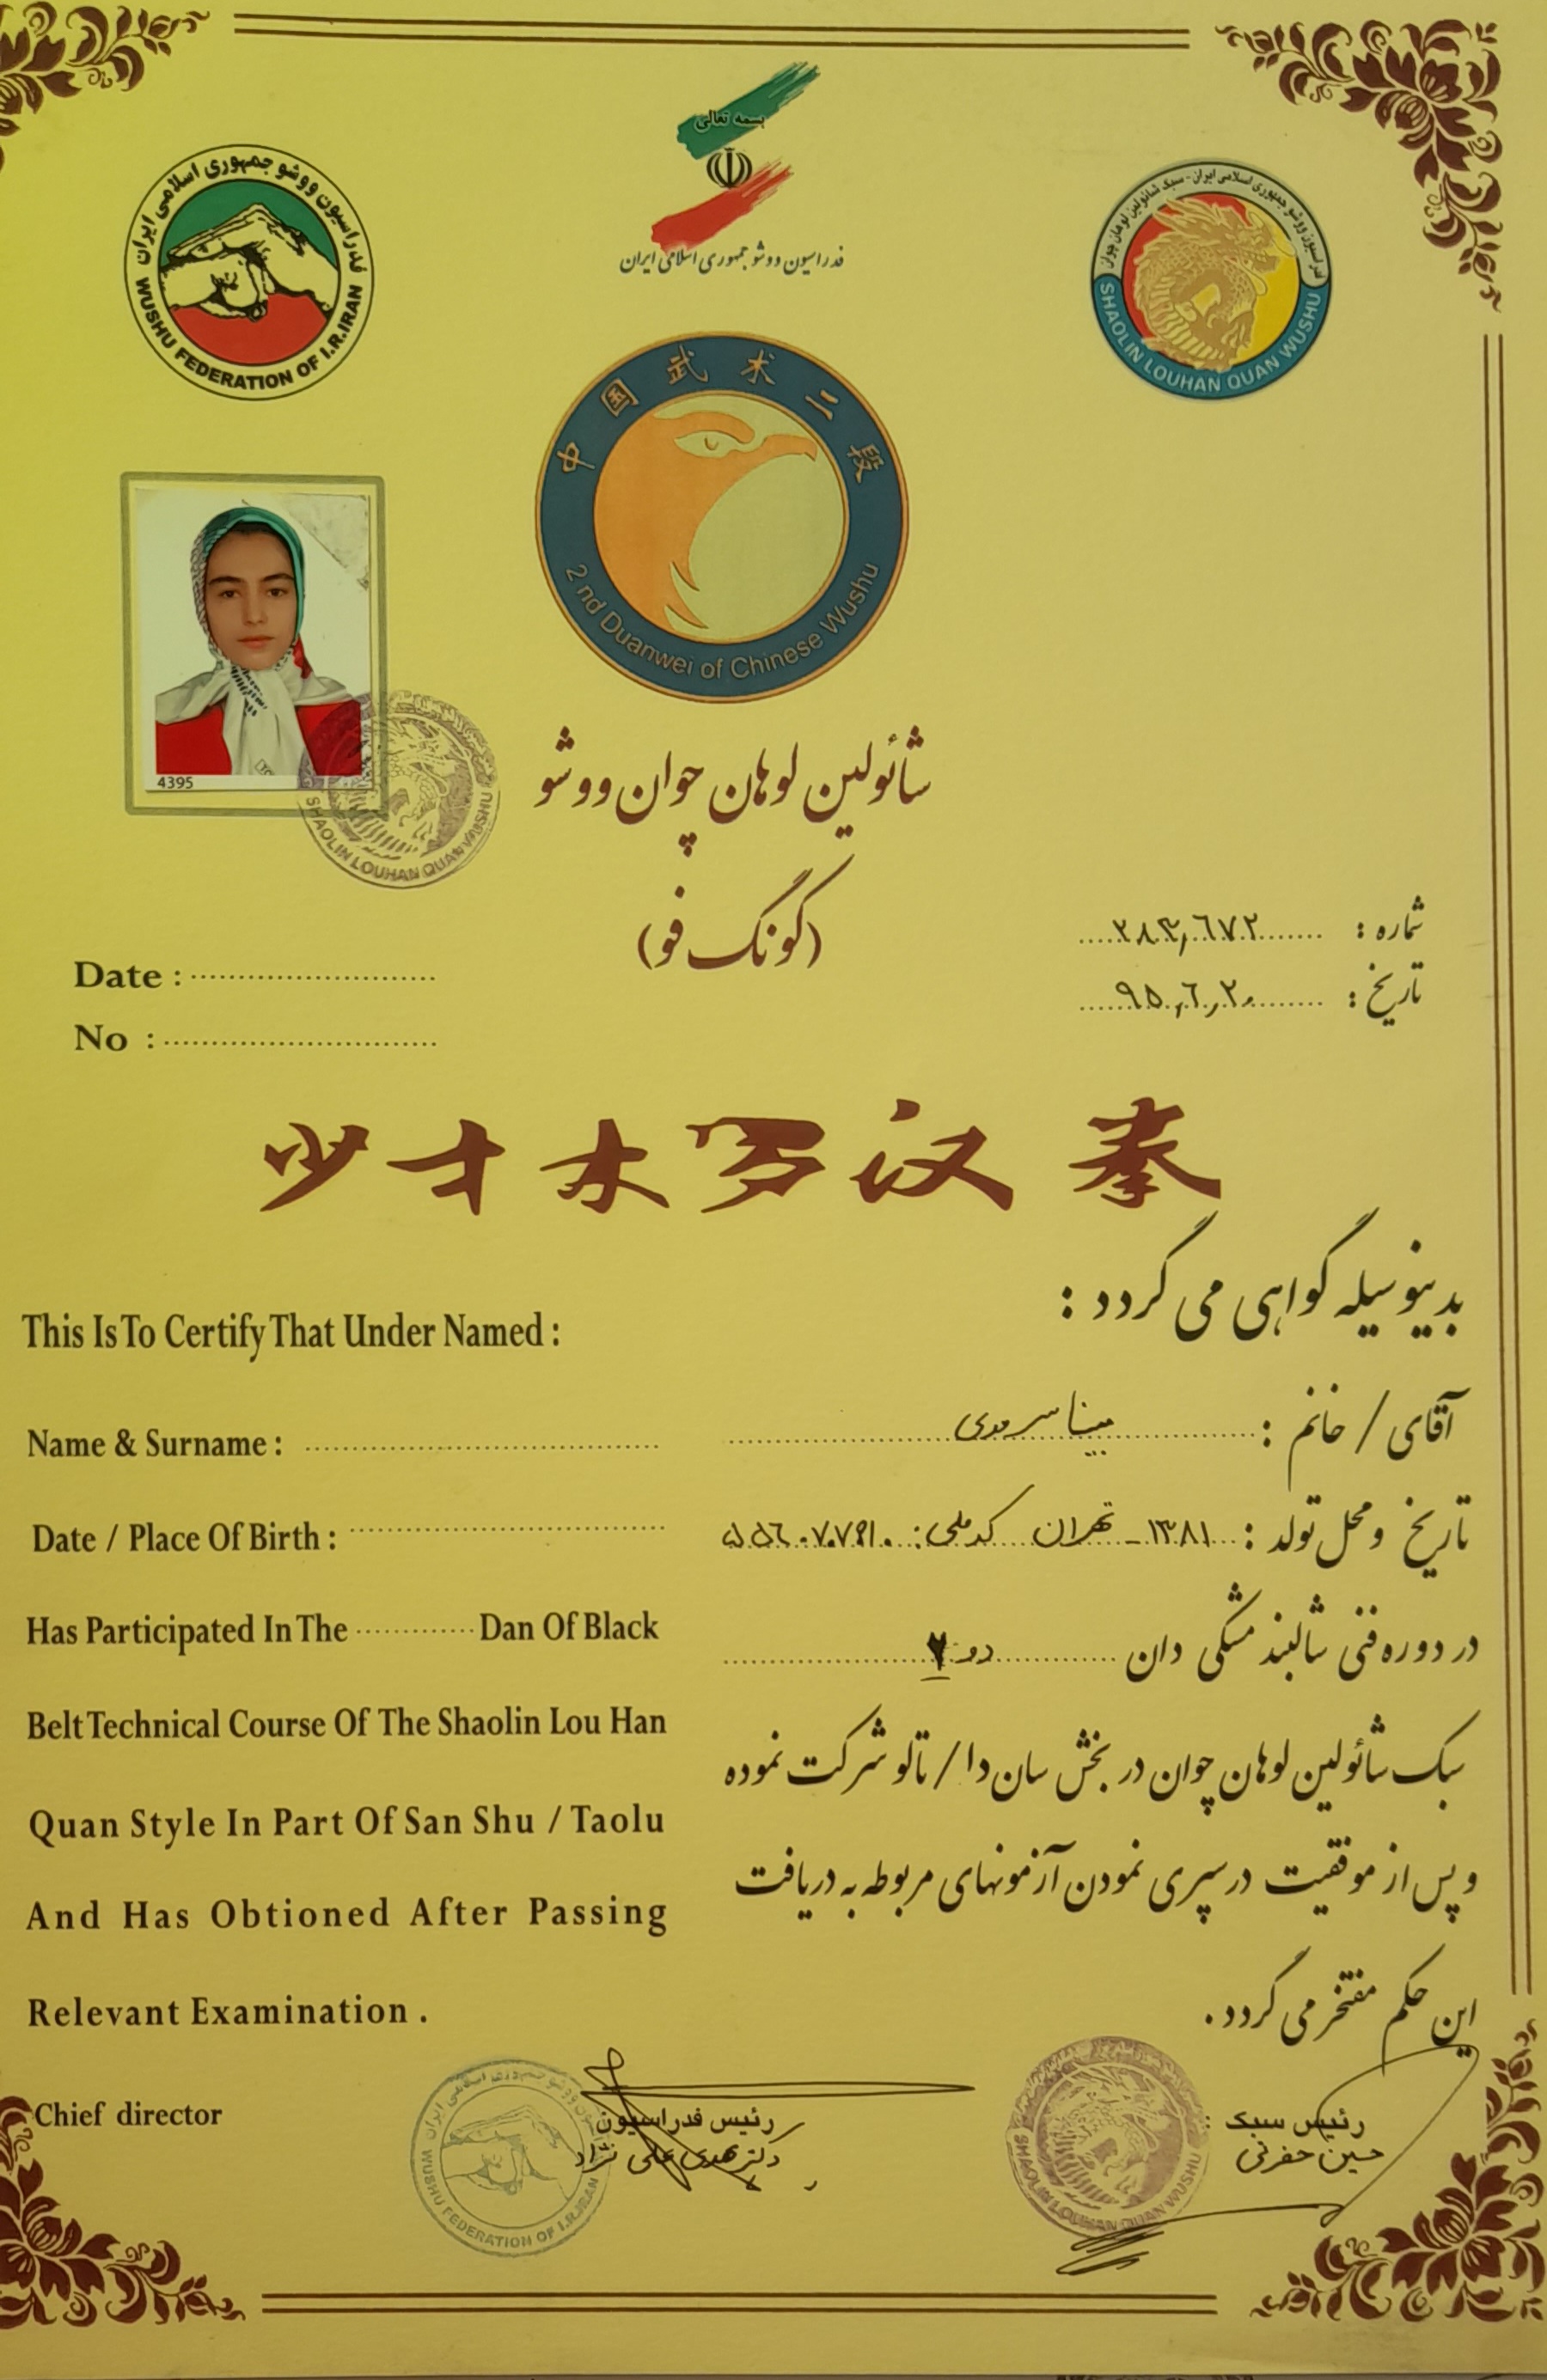 بسمه تعالی
فدراسیون ووشو جمهوری اسلامی ایران
فدراسیون ووشو جمهوری اسلامی ایران
WUSHU FEDERATION OF I.R.IRAN
فدراسیون ووشو جمهوری اسلامی ایران - سبک شائولین لوهان چوان
SHAOLIN LOUHAN QUAN WUSHU
中国武术二段
2 nd Duanwei of Chinese Wushu
4395
SHAOLIN LOUHAN QUAN WUSHU
شائولین لوهان چوان ووشو
(کونگ فو)
شماره : ۲۸۳,٦۷۲
تاریخ : ۹۵,٦,۲۰
Date :
No :
少才木罗汉拳
بدینوسیله گواهی می گردد :
This Is To Certify That Under Named :
آقای / خانم : مینا
Name & Surname :
تاریخ و محل تولد : ۱۳۸۱ - تهران کد ملی:
Date / Place Of Birth :
در دوره فنی شالبند مشکی دان دو ۲
Has Participated In The Dan Of Black
سبک شائولین لوهان چوان در بخش سان دا / تالو شرکت نموده
Belt Technical Course Of The Shaolin Lou Han
و پس از موفقیت در سپری نمودن آزمونهای مربوطه به دریافت
Quan Style In Part Of San Shu / Taolu
این حکم مفتخر می گردد .
And Has Obtioned After Passing
Relevant Examination .
Chief director
رئیس فدراسیون
دکتر مهدی علی نژاد
WUSHU FEDERATION OF I.R.IRAN
رئیس سبک :
حسین جعفرنی
SHAOLIN LOUHAN QUAN WUSHU